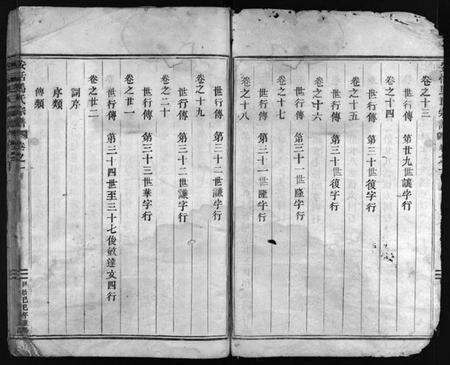 卷之十三
世行傳 第廿九世議字行
卷之十四
世行傳 第三十世復字行
卷之十五
世行傳 第三十世復字行
卷之十六
世行傳 第三十一世隆字行
卷之十七
世行傳 第三十一世隆字行
卷之十八
世行傳 第三十二世謙字行
卷之十九
世行傳 第三十二世謙字行
卷之二十
世行傳 第三十三世華字行
卷之廿一
世行傳 第三十四世至三十七俊敏達文四行
卷之廿二
詞序
序類
傳類